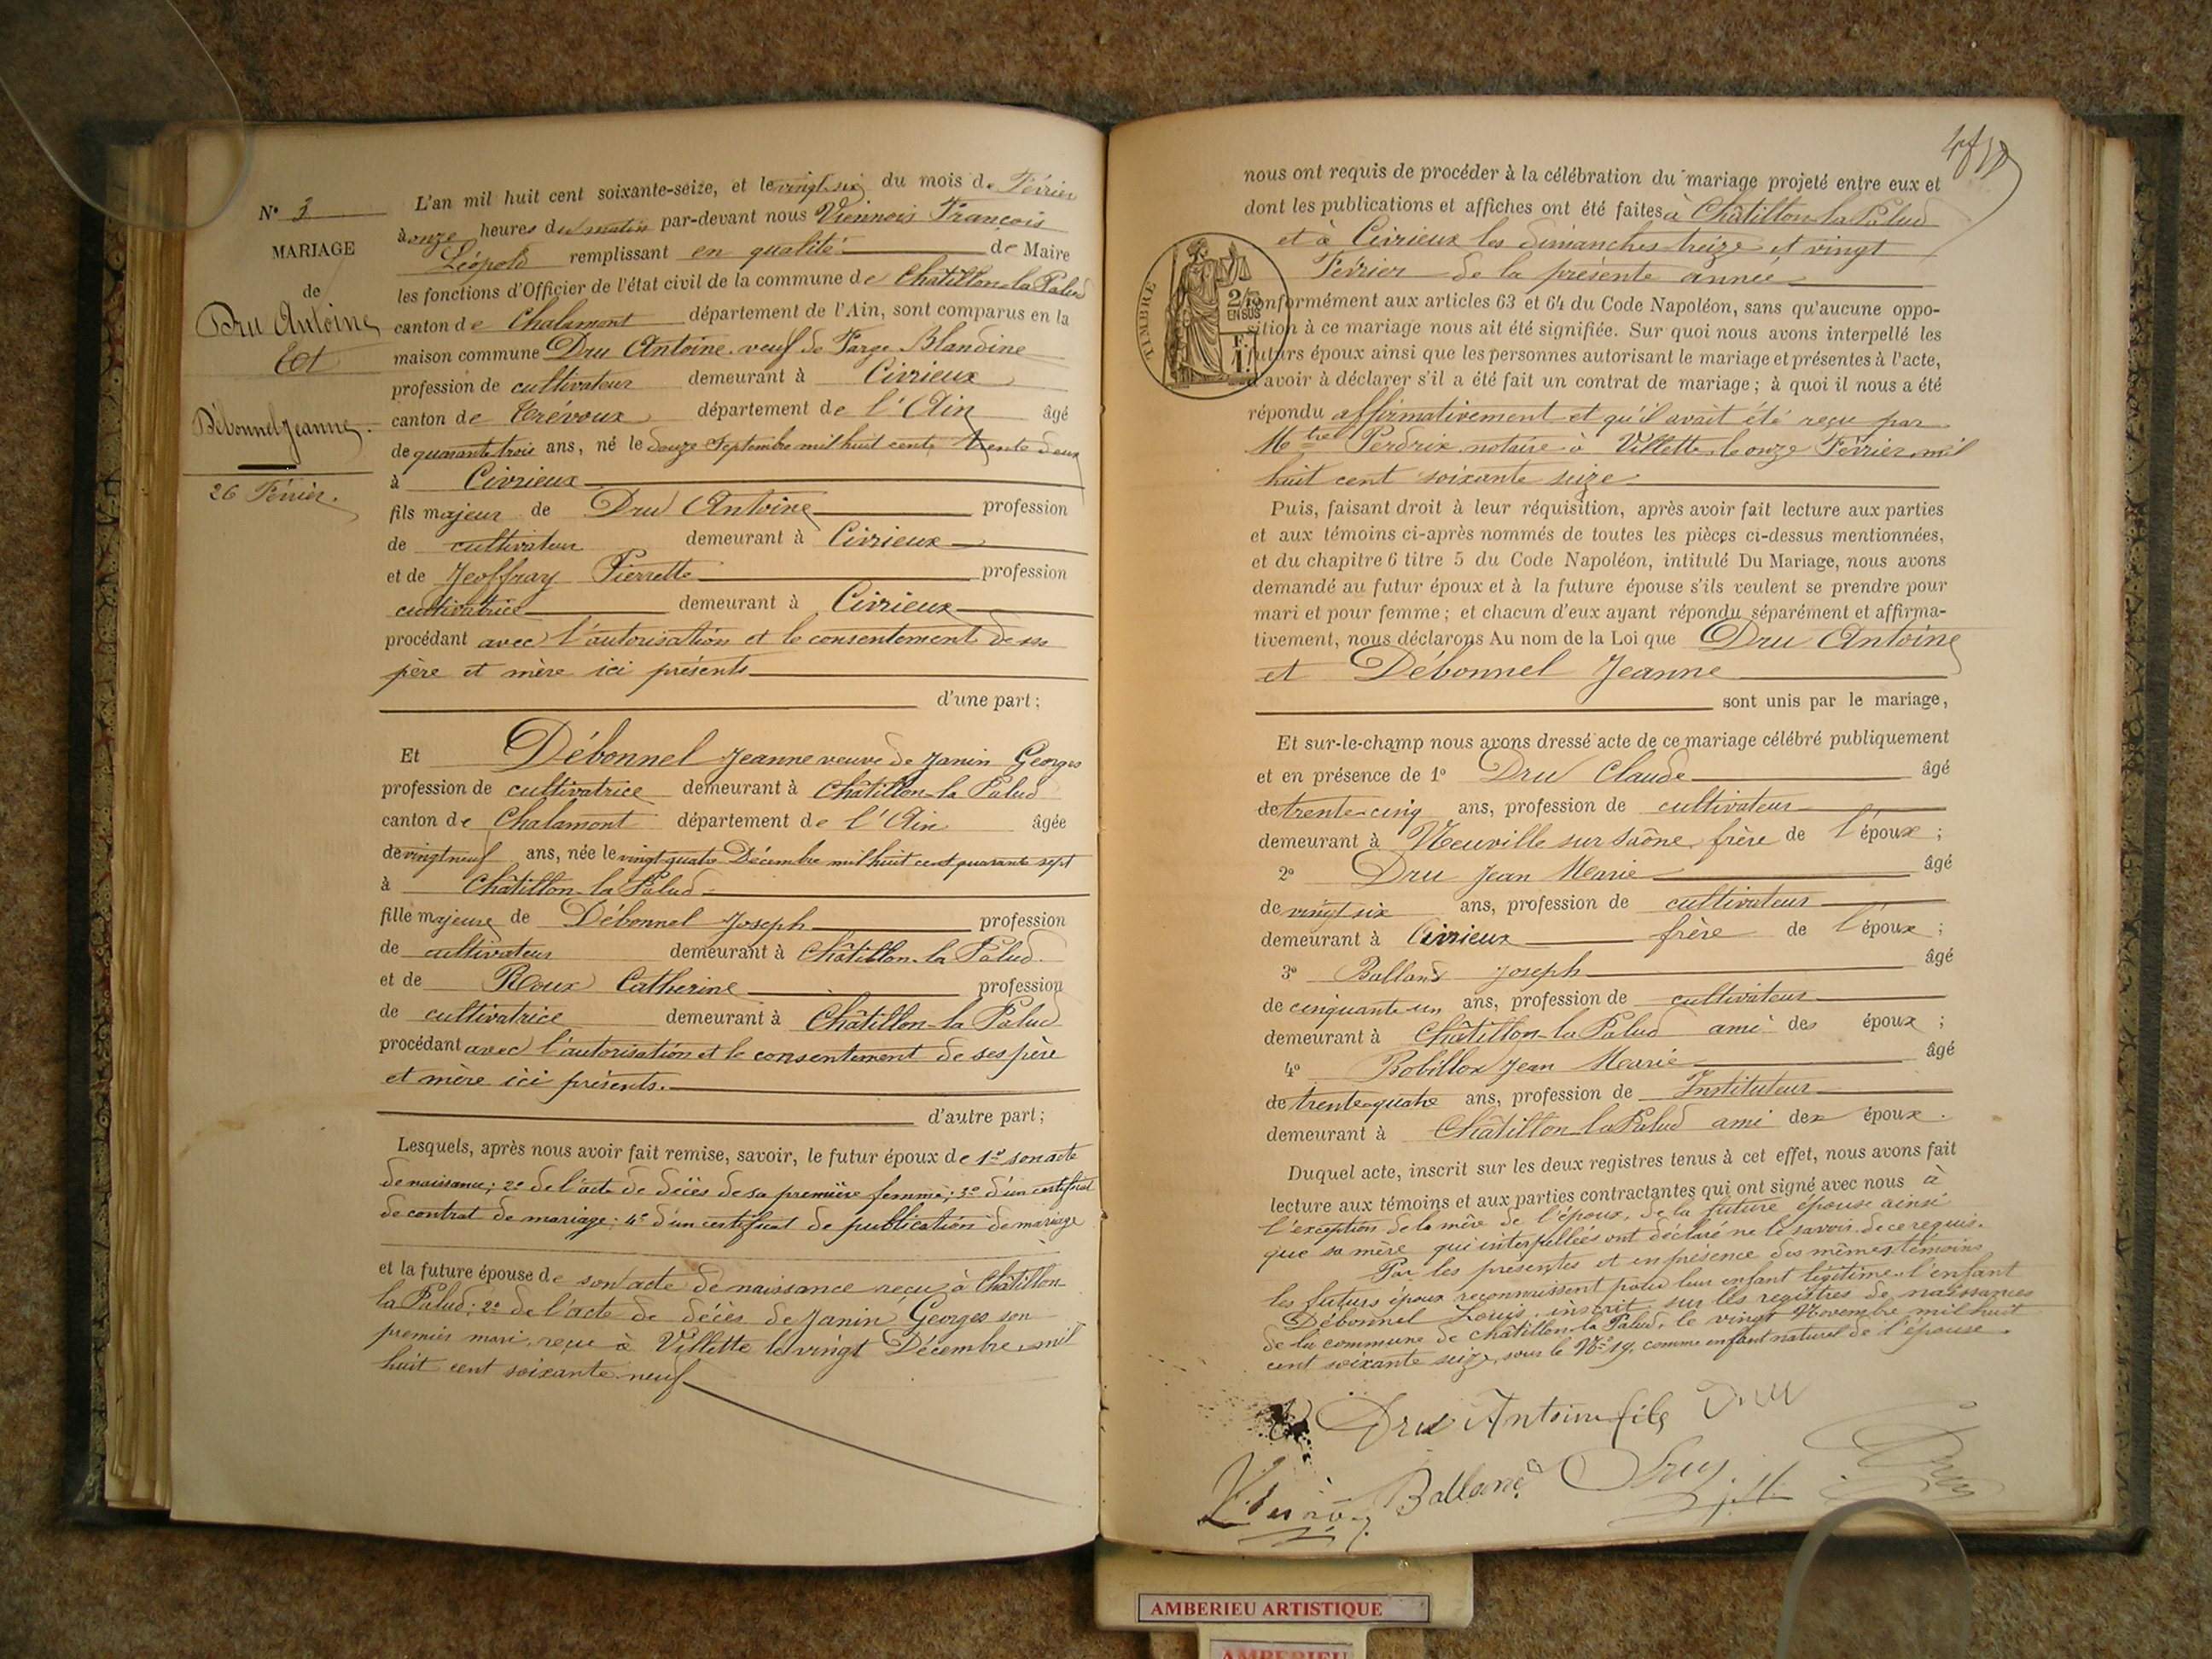 N° 3
MARIAGE
de
Dru Antoine
Et
Débonnel Jeanne.
26 Février.
L'an mil huit cent soixante-seize, et le vingt six du mois de Février
à onze heures du matin par-devant nous Viennois François
Léopold remplissant en qualité de Maire
les fonctions d'Officier de l'état civil de la commune de Châtillon-la-Palud
canton de Chalamont département de l'Ain, sont comparus en la
maison commune Dru Antoine veuf de Farge Blandine
profession de cultivateur demeurant à Civrieux
canton de Trévoux département de l'Ain âgé
de quarante trois ans, né le douze Septembre mil huit cent trente deux
à Civrieux
fils majeur de Dru Antoine profession
de cultivateur demeurant à Civrieux
et de Jeoffray Pierrette profession
cultivatrice demeurant à Civrieux
procédant avec l'autorisation et le consentement de ses
père et mère ici présents
d'une part ;
Et Débonnel Jeanne veuve de Janin Georges
profession de cultivatrice demeurant à Châtillon-la-Palud
canton de Chalamont département de l'Ain âgée
de vingt neuf ans, née le vingt quatre Décembre mil huit cent quarante sept
à Châtillon-la-Palud
fille majeure de Débonnel Joseph profession
de cultivateur demeurant à Châtillon-la-Palud
et de Roux Catherine profession
de cultivatrice demeurant à Châtillon-la-Palud
procédant avec l'autorisation et le consentement de ses père
et mère ici présents.
d'autre part ;
Lesquels, après nous avoir fait remise, savoir, le futur époux de 1° son acte
de naissance ; 2° de l'acte de décès de sa première femme ; 3° d'un certificat
de contrat de mariage ; 4° d'un certificat de publication de mariage
et la future épouse de son acte de naissance reçu à Châtillon-
la-Palud ; 2° de l'acte de décès de Janin Georges son
premier mari, reçu à Villette le vingt Décembre mil
huit cent soixante-neuf
nous ont requis de procéder à la célébration du mariage projeté entre eux et
dont les publications et affiches ont été faites à Châtillon-la-Palud
et à Civrieux les dimanches treize et vingt
Février de la présente année
TIMBRE
2/10
EN SUS
F.
1.
conformément aux articles 63 et 64 du Code Napoléon, sans qu'aucune oppo-
sition à ce mariage nous ait été signifiée. Sur quoi nous avons interpellé les
futurs époux ainsi que les personnes autorisant le mariage et présentes à l'acte,
d'avoir à déclarer s'il a été fait un contrat de mariage ; à quoi il nous a été
répondu affirmativement et qu'il avait été reçu par
Mtre Perdrix notaire à Villette le onze Février mil
huit cent soixante seize
Puis, faisant droit à leur réquisition, après avoir fait lecture aux parties
et aux témoins ci-après nommés de toutes les pièces ci-dessus mentionnées,
et du chapitre 6 titre 5 du Code Napoléon, intitulé Du Mariage, nous avons
demandé au futur époux et à la future épouse s'ils veulent se prendre pour
mari et pour femme ; et chacun d'eux ayant répondu séparément et affirma-
tivement, nous déclarons Au nom de la Loi que Dru Antoine
et Débonnel Jeanne
sont unis par le mariage,
Et sur-le-champ nous avons dressé acte de ce mariage célébré publiquement
et en présence de 1° Dru Claude âgé
de trente-cinq ans, profession de cultivateur
demeurant à Neuville sur Saône frère de l'époux ;
2° Dru Jean Marie âgé
de vingt six ans, profession de cultivateur
demeurant à Civrieux frère de l'époux ;
3° Balland Joseph âgé
de cinquante un ans, profession de cultivateur
demeurant à Châtillon-la-Palud ami des époux ;
4° Robillox Jean Marie âgé
de trente-quatre ans, profession de Instituteur
demeurant à Châtillon-la-Palud ami des époux.
Duquel acte, inscrit sur les deux registres tenus à cet effet, nous avons fait
lecture aux témoins et aux parties contractantes qui ont signé avec nous à
l'exception de la mère de l'époux, de la future épouse ainsi
que sa mère qui interpellées ont déclaré ne le savoir de ce requis.
Par les présentes et en présence des mêmes témoins
les futurs époux reconnaissent pour leur enfant légitime l'enfant
Débonnel Louis inscrit sur les registres de naissances
de la commune de Châtillon-la-Palud, le vingt Novembre mil huit
cent soixante seize, sous le N° 19, comme enfant naturel de l'épouse.
Dru Antoine fils Dru
Balland
AMBERIEU ARTISTIQUE
AMBERIEU